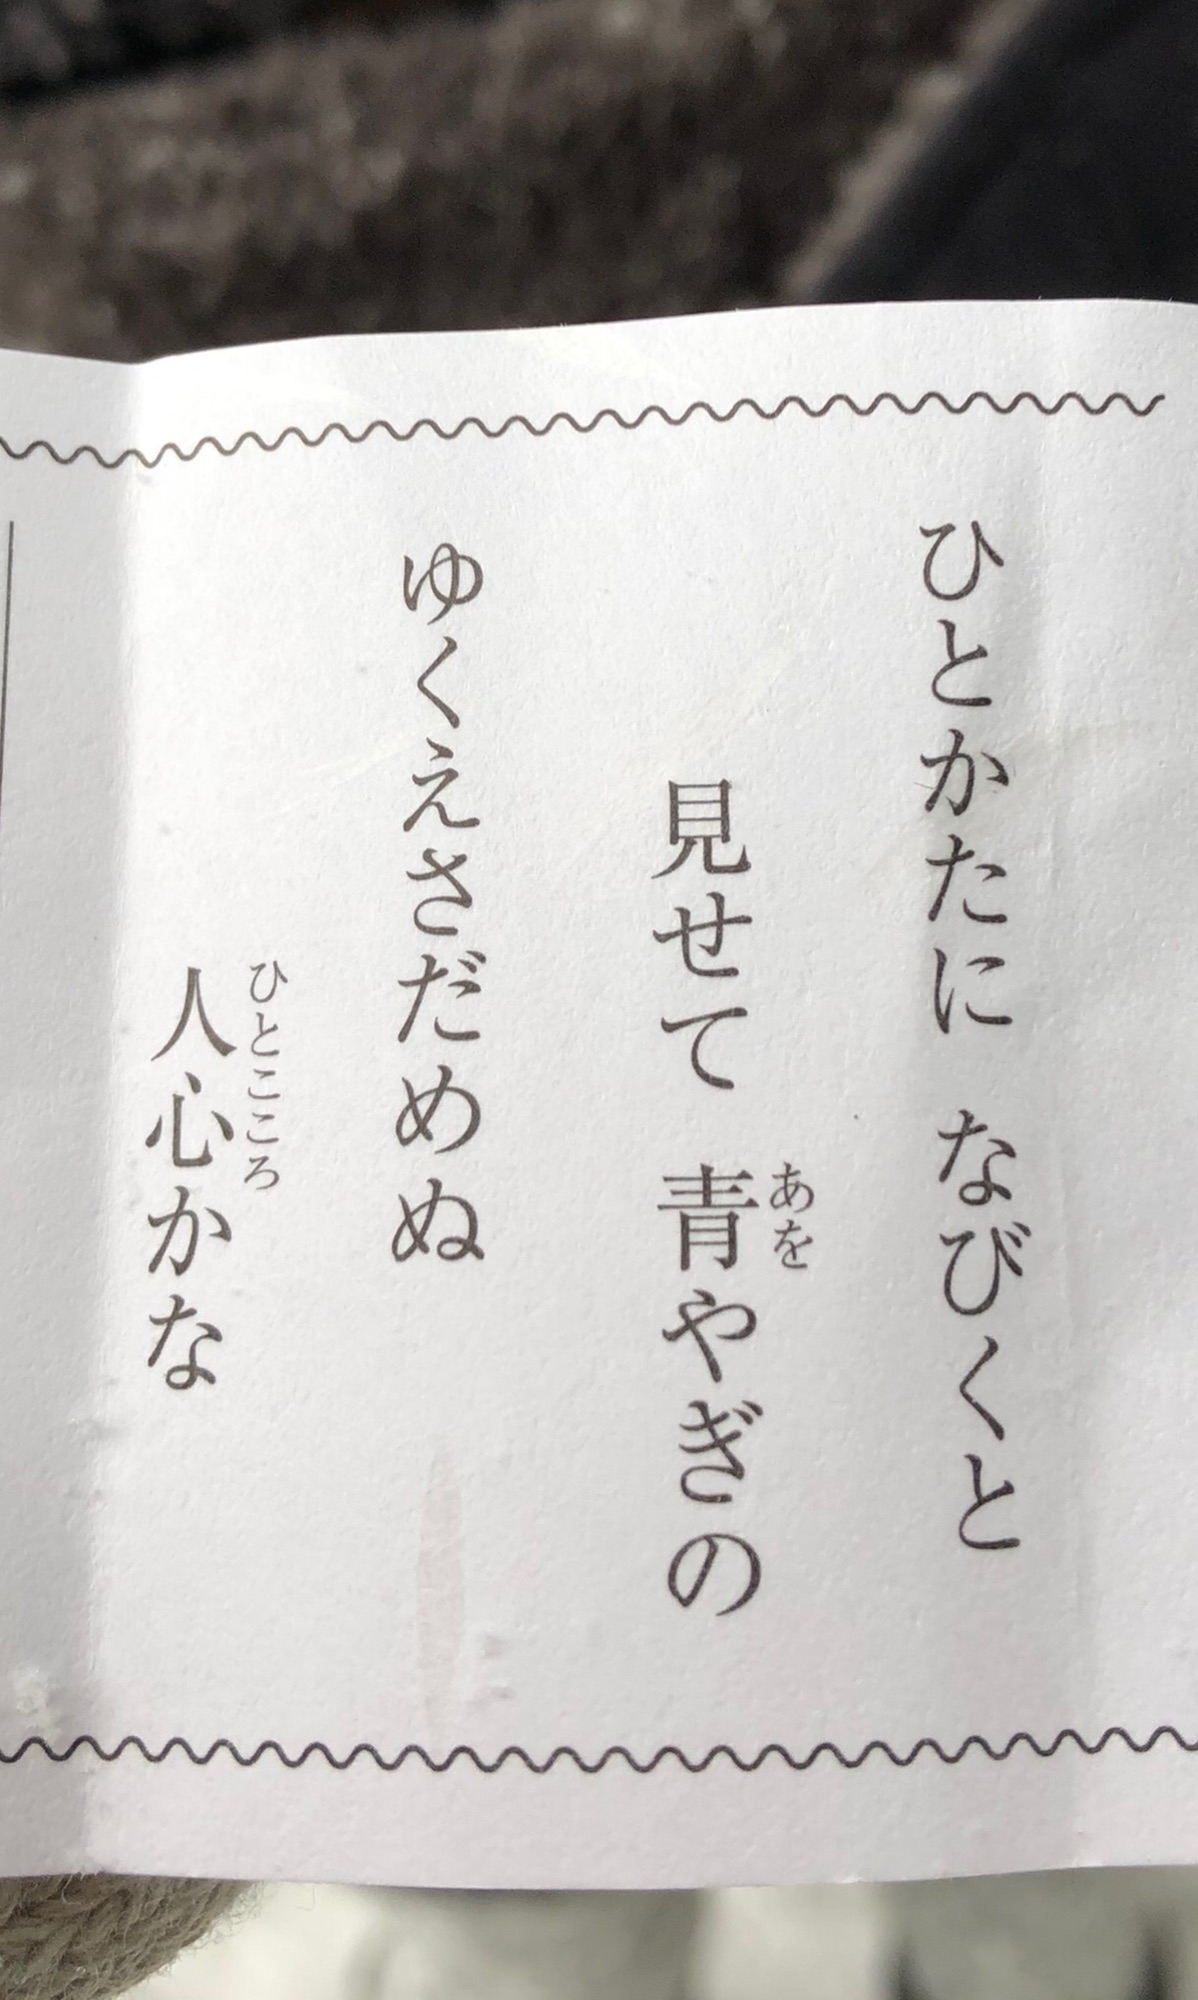 ひとかたに なびくと
見せて 青やぎの
あを
ゆくえさだめぬ
人心かな
ひとこころ